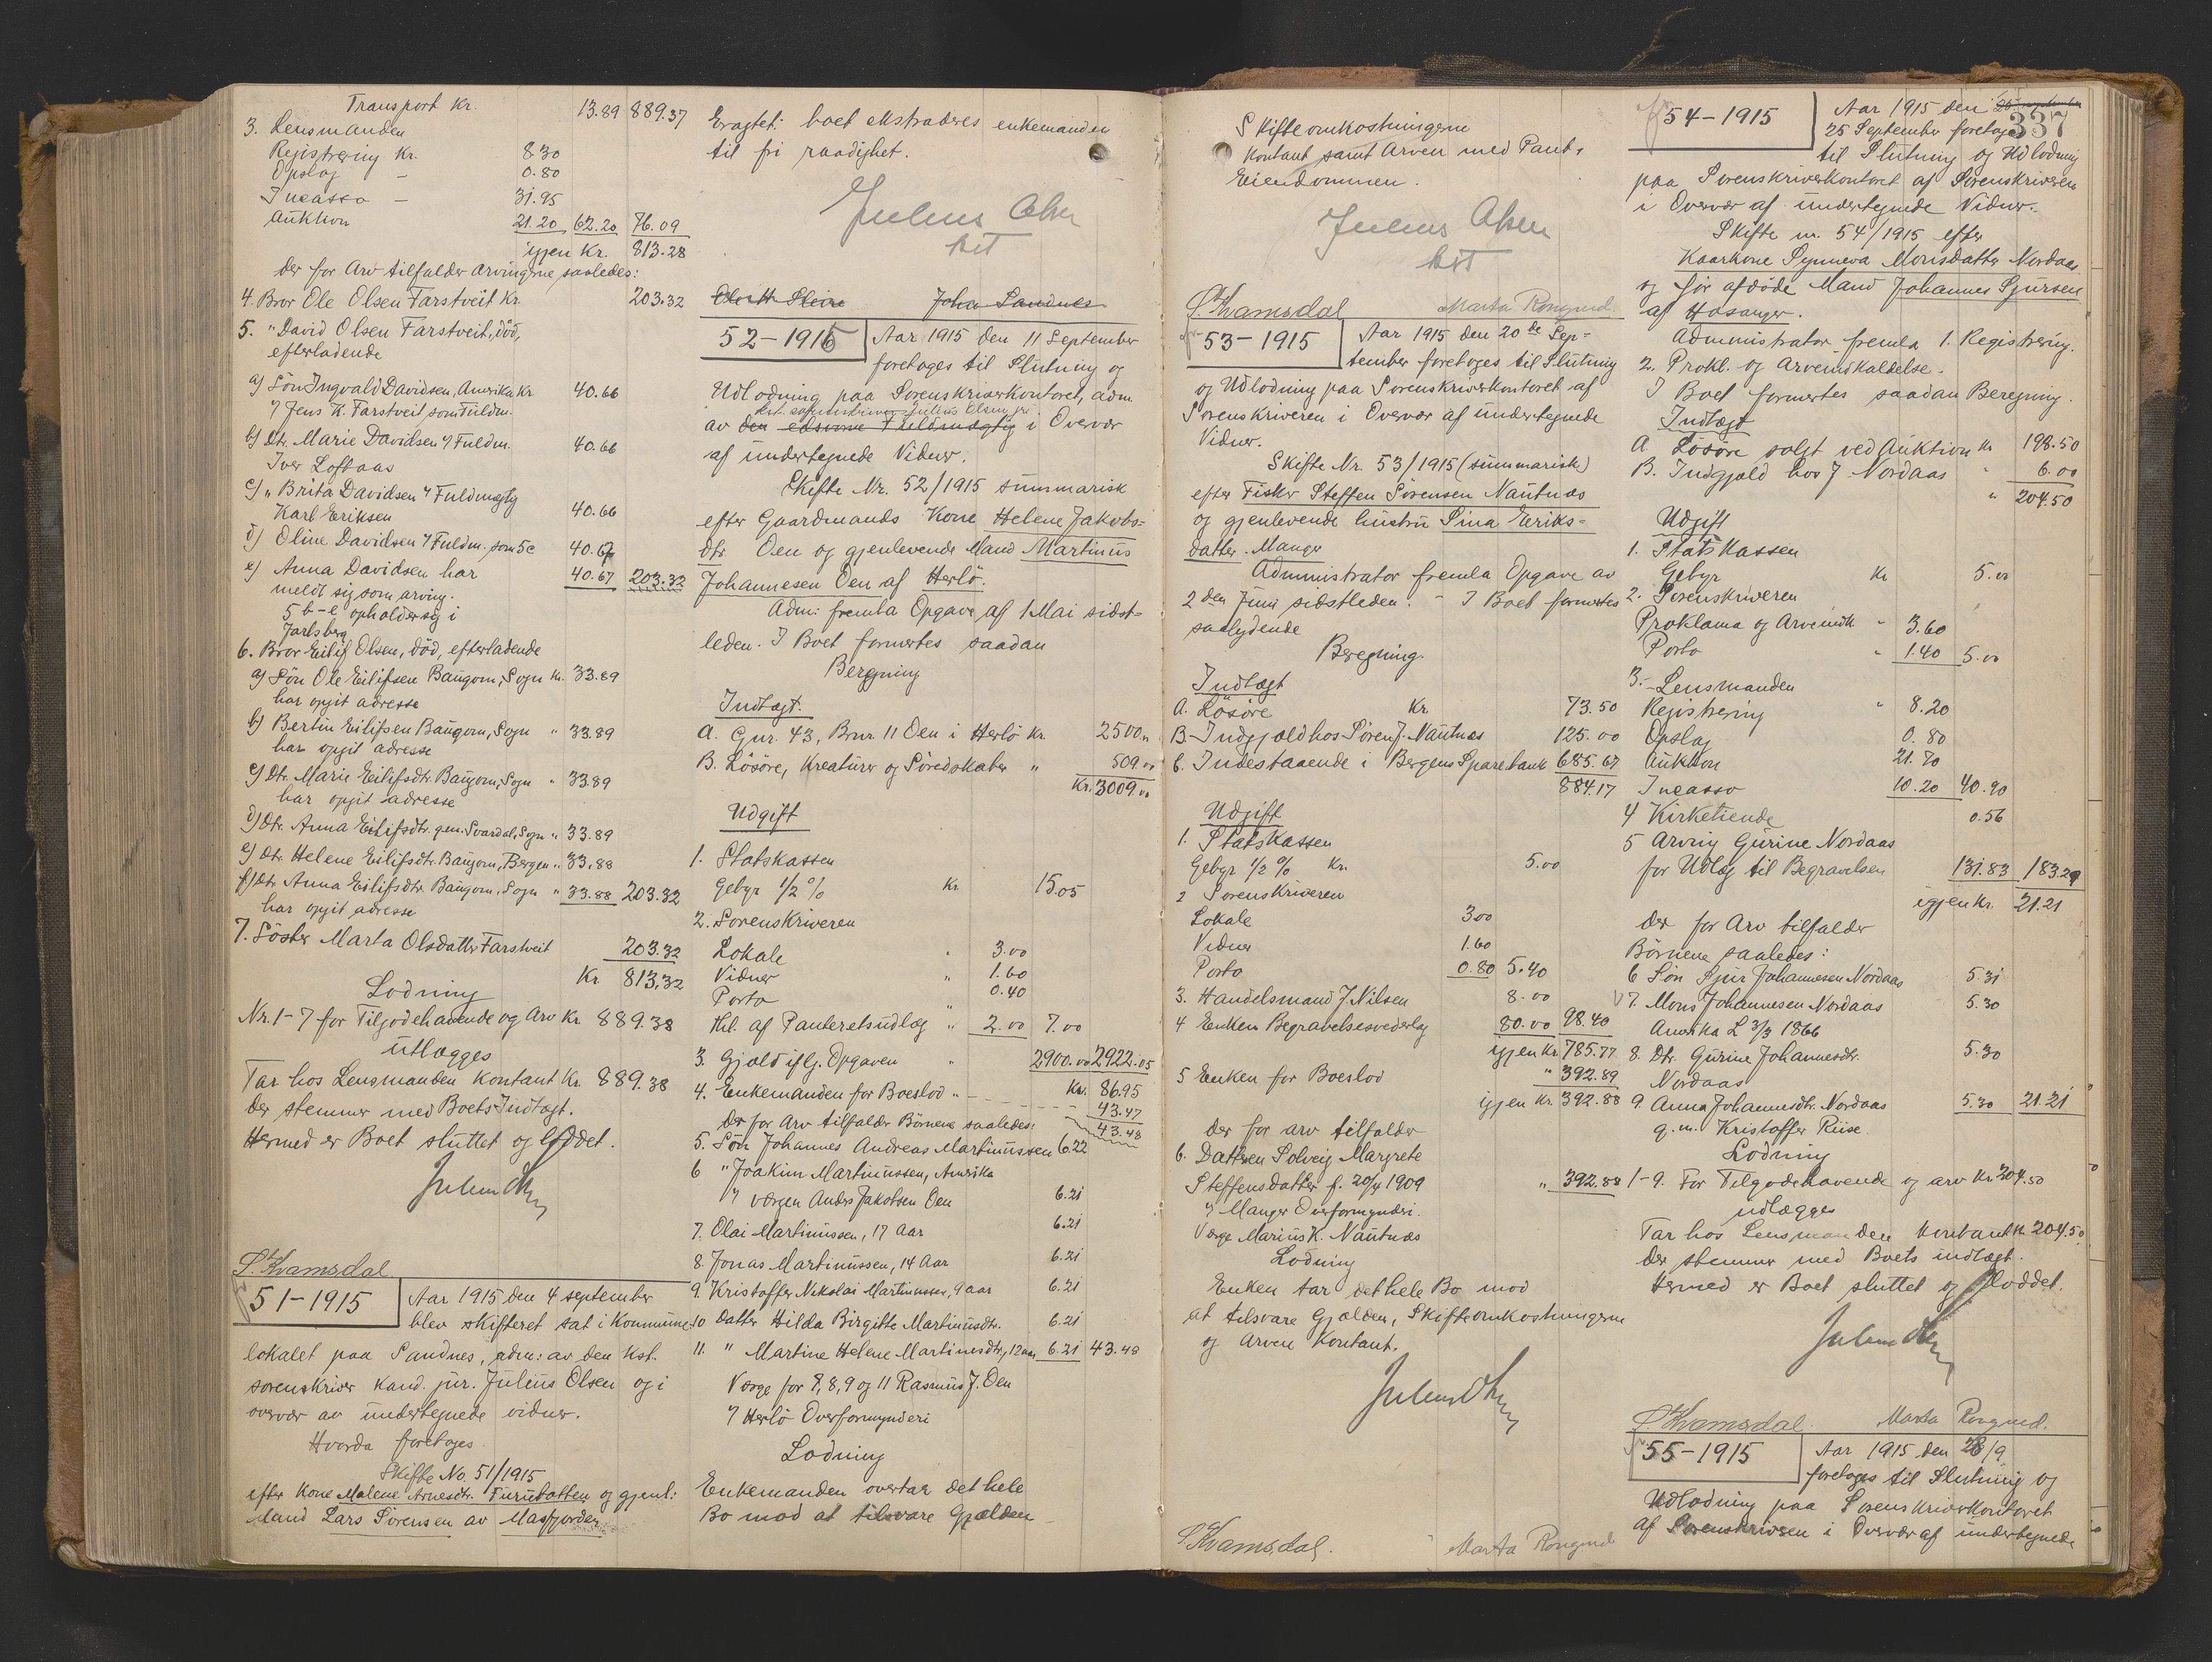 Transport Kr. 13.89 889.37
3. Lensmanden
Registrering Kr. 8.30
Opslag - 0.80
Incasso - 31.95
Auktion 21.20 62.20 76.09
igjen Kr. 813.28
der for Arv tilfalder arvingerne saaledes:
4. Bror Ole Olsen Farstveit Kr. 203.32
5. " David Olsen Farstveit, död,
efterladende
a) Sön Ingvald Davidsen, Amerika Kr. 40.66
Jens K. Farstveit som Fuldm.
b) Dtr. Marie Davidsen Fuldm. 40.66
Iver Loftaas
c) " Brita Davidsen Fuldmægtig
Karl Eriksen 40.66
d) Oline Davidsen Fuldm. som 5c 40.67
e) Anna Davidsen har 40.67 203.32
meldt sig som arving.
5 b-e opholder sig i
Jarlsberg
6. Bror Eilif Olsen, död, efterladende
a) Sön Ole Eilifsen Baugom, Sogn Kr. 33.89
har opgit adresse
b) Bertin Eilifsen Baugom, Sogn " 33.89
har opgit adresse
c) Dtr. Marie Eilifsdtr. Baugom, Sogn " 33.89
har opgit adresse
d) Dtr. Anna Eilifsdtr. gm. Svardal, Sogn " 33.89
e) Dtr Helene Eilifsdtr. Baugom, Bergen " 33.88
f) Dtr Anna Eilifsdtr Baugom, Sogn " 33.88 203.32
har opgit adresse
7. Söster Marta Olsdatter Farstveit 203.32
Kr 813.32
Lodning
Nr. 1-7 for Tilgodehavende og Arv Kr 889.38
utlægges
Tar hos Lensmanden Kontant Kr. 889.38
der stemmer med Boets Indtægt.
Hermed er Boet sluttet og loddet.
S. Kvamsdal
51-1915 Aar 1915 den 4 september
blev skifteret sat i Kommune-
lokalet paa Sandnes, adm: av den Kst.
sorenskriver Kand. jur. Julius Olsen og i
overvær av undertegnede vidner.
Hvorda foretoges
Skifte No. 51/1915
efter Kone Malene Arnesdtr. Furubotten og gjenl:
Mand Lars Sörensen av Masfjorden
Eragtet: boet ekstraderes enkemanden
til fri raadighet.
Julius Olsen
kst
Johan Sandnes
52-1915 Aar 1915 den 11 September
foretoges til Slutning og
Udlodning paa Sorenskriverkontoret, adm.
kst. sorenskriver Julius Olsen jr.
av den edsvorne Fuldmægtig i Overvær
af undertegnede Vidner.
Skifte Nr. 52/1915 summarisk
efter Gaardmands Kone Helene Jakobs-
dtr. Öen og gjenlevende Mand Martinus
Johannesen Öen af Herlö.
Adm: fremla Opgave af 1 Mai sidst-
leden. I Boet formertes saadan
Beregning
Indtægt.
A. Gnr. 43, Brnr. 11 Öen i Herlö Kr. 2500 "
B. Lösöre, Kreaturer og Söredskaber " 509.00
Kr. 3009.00
Udgift
1. Statskassen
Gebyr 1/2 % Kr 15.05
2. Sorenskriveren
Lokale " 3.00
Vidner " 1.60
Porto " 0.40
Hl. af Panteretsudlæg " 2.00 7.00
3. Gjæld iflg. Opgaven " 2900.00 2922.05
Kr. 86.95
4. Enkemanden for Boeslod " 43.47
43.48
der for Arv tilfalder Börnene saaledes:
5. Sön Johannes Andreas Martinussen 6.22
6 " Joakim Martinussen, Amerika
værgen Anders Jakobsen Öen 6.21
7. Olai Martinussen, 17 Aar 6.21
8. Jonas Martinussen, 14 Aar 6.21
9. Kristoffer Nikolai Martinussen, 9 aar 6.21
10 Datter Hilda Birgitte Martinusdtr. 6.21
11. " Martine Helene Martinusdtr., 12 aar 6.21 43.48
Værge for 7, 8, 9 og 11 Rasmus J. Öen
Herlö Overformynderi
Lodning
Enkemanden overtar det hele
Bo mod at tilsvare Gjælden
Skifteomkostningerne
Kontant samt Arven med Pant i
Eiendommen.
Julius Olsen
kst
S. Kvamsdal Marta Rongved
53-1915 Aar 1915 den 20de Sep-
tember foretoges til Slutning
og Udlodning paa Sorenskriverkontoret af
Sorenskriveren i Overvær af undertegnede
Vidner.
Skifte Nr. 53/1915 (summarisk)
efter Fisker Steffen Sörensen Nautnes
og gjenlevende hustru Sina Eeriks-
datter. Manger
Administrator fremla Opgave av
2den Juni sidstleden. - I Boet formertes
saalydende
Beregning.
Indtægt
A. Lösöre Kr. 73.50
B. Indgjæld hos Sören J. Nautnes 125.00
C. Indestaaende i Bergens Sparebank 685.67
884.17
Udgift
1. Statskassen
Gebyr 1/2 % Kr. 5.00
2 Sorenskriveren
Lokale 3.00
Vidner 1.60
Porto 0.80 5.40
3. Handelsmand J. Nilsen 8.00
4 Enken Begravelsesvederlag 80.00 98.40
igjen Kr. 785.77
5 Enken for Boeslod " 392.89
igjen Kr. 392.88
der for arv tilfalder
6. Datteren Solveig Margrete
Steffensdatter f. 20/4 1909 " 392.88
Manger Overformynderi.
Værge Marius K. Nautnes
Lodning
Enken tar det hele Bo mod
at tilsvare Gjælden, Skifteomkostningerne
og Arven Kontant.
S Kvamsdal. Marta Rongved
54-1915 Aar 1915 den
337
25 September foretoges
til Slutning og Udlodning
paa Sorenskriverkontoret af Sorenskriveren
i Overvær af undertegnede Vidner.
Skifte nr. 54/1915 efter
Kaarkone Synneva Monsdatter Nordaas
og för afdöde Mand Johannes Sjursen
af Hosanger.
Administrator fremla 1. Registrering.
2. Prokl. og Arveindkaldelse.
I Boet formertes saadan Beregning.
Indtægt
A Lösöre solgt ved Auktion Kr 198.50
B. Indgjæld hos J Nordaas " 6.00
" 204.50
Udgift
1. Stats Kassen
Gebyr Kr 5.00
2. Sorenskriveren
Proklama og Arveindk " 3.60
Porto " 1.40 5.00
3. Lensmanden
Registrering " 8.20
Opslag 0.80
Auktion 21.70
Incasso 10.20 40.90
4 Kirketiende 0.56
5 Arving Gurine Nordaas
for Udlæg til Begravelsen 131.83 183.29
igjen Kr. 21.21
der for Arv tilfalder
Börnene saaledes:
6 Sön Sjur Johannesen Nordaas 5.31
7. Mons Johannesen Nordaas 5.30
Amerika
8. Dtr. Gurine Johannesdtr. 5.30
Nordaas
9. Anna Johannesdtr. Nordaas 5.30 21.21
g. m. Kristoffer Riise.
Lodning
1-9. For Tilgodehavende og arv Kr. 204.50
udlægges
Tar hos Lensmanden Kontant Kr 204.50
der stemmer med Boets indtægt.
Hermed er Boet sluttet og loddet.
S Kvamsdal. Marta Rongved.
55-1915 Aar 1915 den 28/9
foretoges til Slutning og
Udlodning paa Sorenskriverkontoret
af Sorenskriveren i Overvær af undertegnede